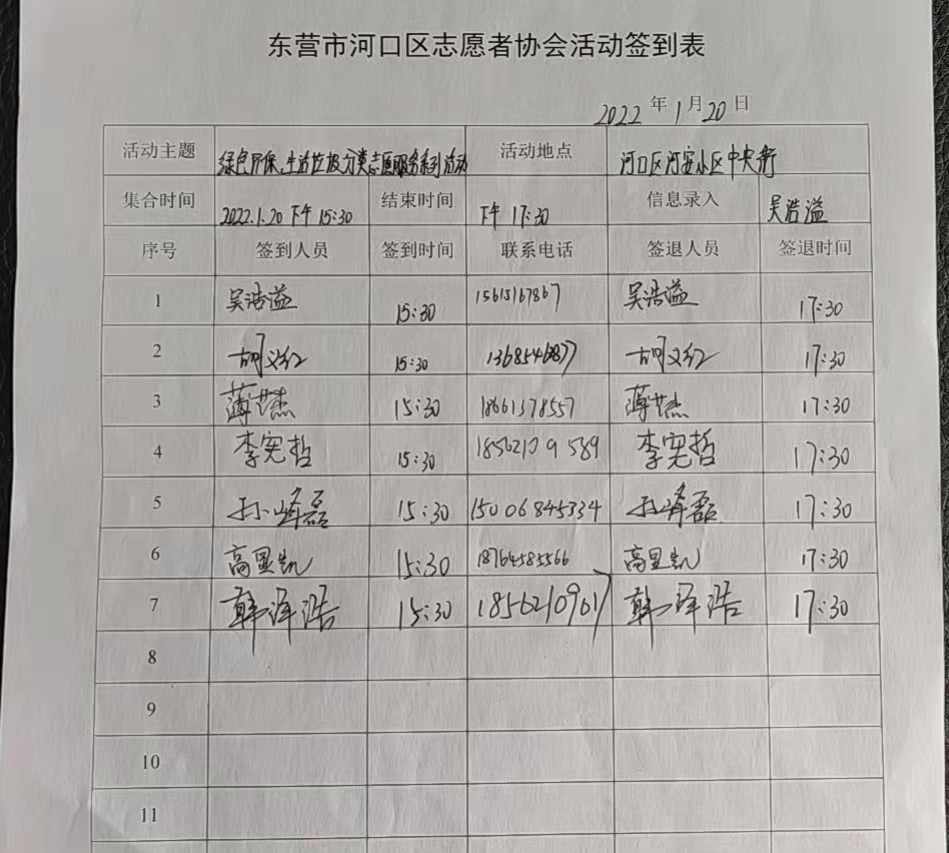 东营市河口区志愿者协会活动签到表
2022 年 1 月 20 日
活动主题 绿色环保、生活垃圾分类志愿服务系列活动 活动地点 河口区河安小区中央街
集合时间 2022.1.20 下午 15:30 结束时间 下午 17:30 信息录入 吴浩溢
序号 签到人员 签到时间 联系电话 签退人员 签退时间
1 吴浩溢 15:30 15615167867 吴浩溢 17:30
2 胡义红 15:30 胡义红 17:30
3 薄其杰 15:30 18661378557 薄其杰 17:30
4 李宪哲 15:30 18562109589 李宪哲 17:30
5 孙峰磊 15:30 15006845334 孙峰磊 17:30
6 高显凯 15:30 18764585566 高显凯 17:30
7 韩泽浩 15:30 18562109617 韩泽浩 17:30
8
9
10
11